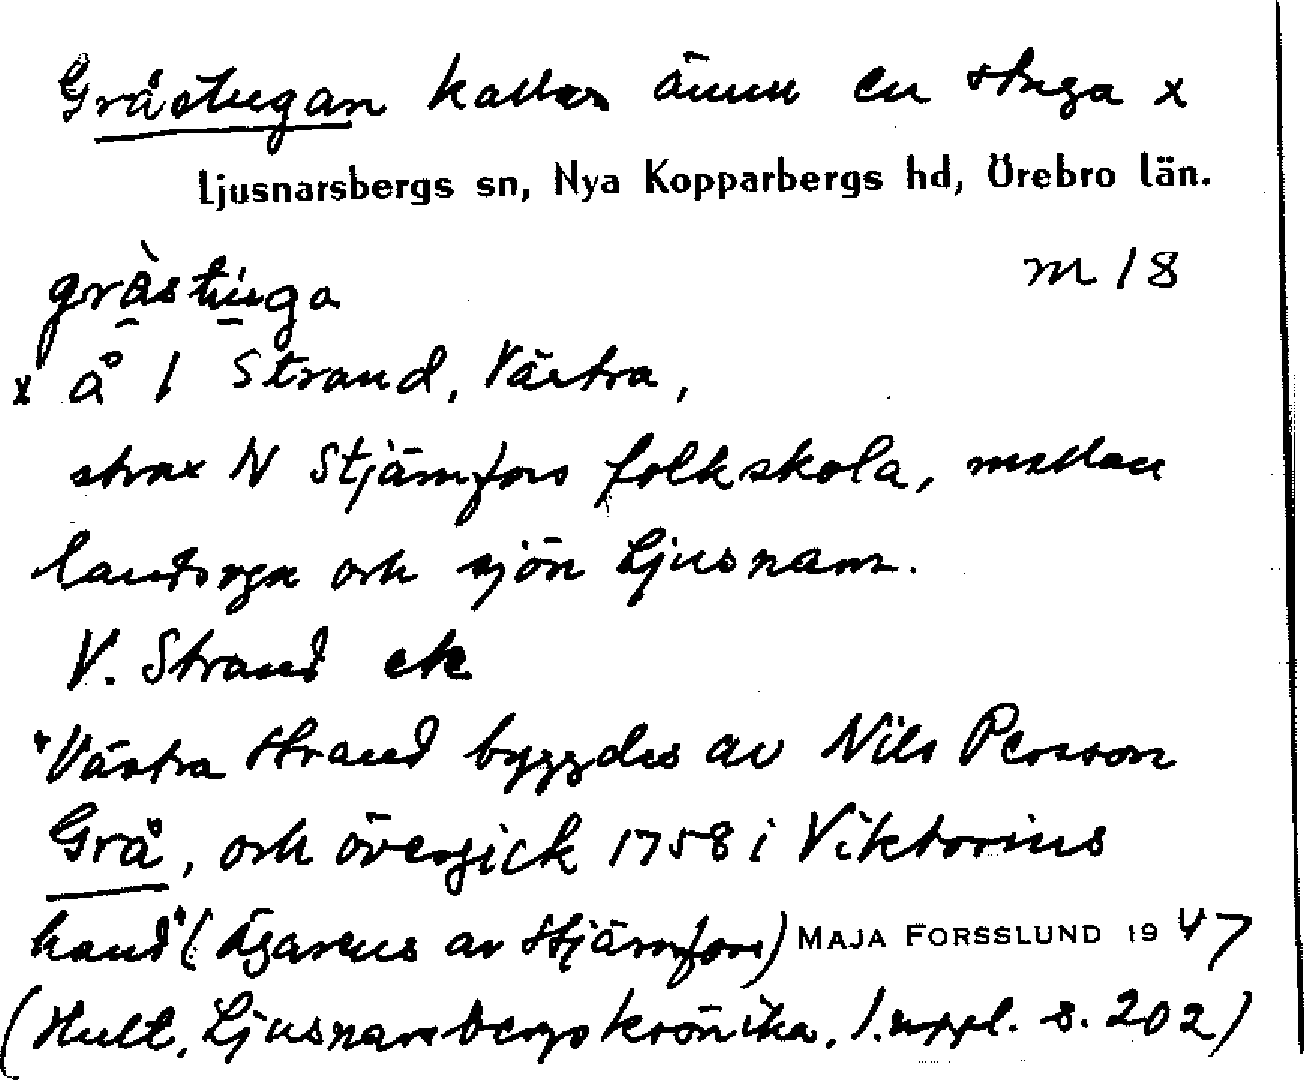 Gråstugan kallas ännu en stuga x
Ljusnarsbergs sn, Nya Kopparbergs hd, Örebro län.
gråstuga
m 18
x å 1 Strand, Västra,
strax N Stjärnfors folkskola, mellan
landsvgn och sjön Ljusnarn.
V. Strand ek
"Västra Strand byggdes av Nils Persson
Grå, och övergick 1758 i Viktorius
hand" (ägarens av Stjärnfors) MAJA FORSSLUND 1947
(Hult, Ljusnarsbergskrönika, 1. uppl. s. 202)